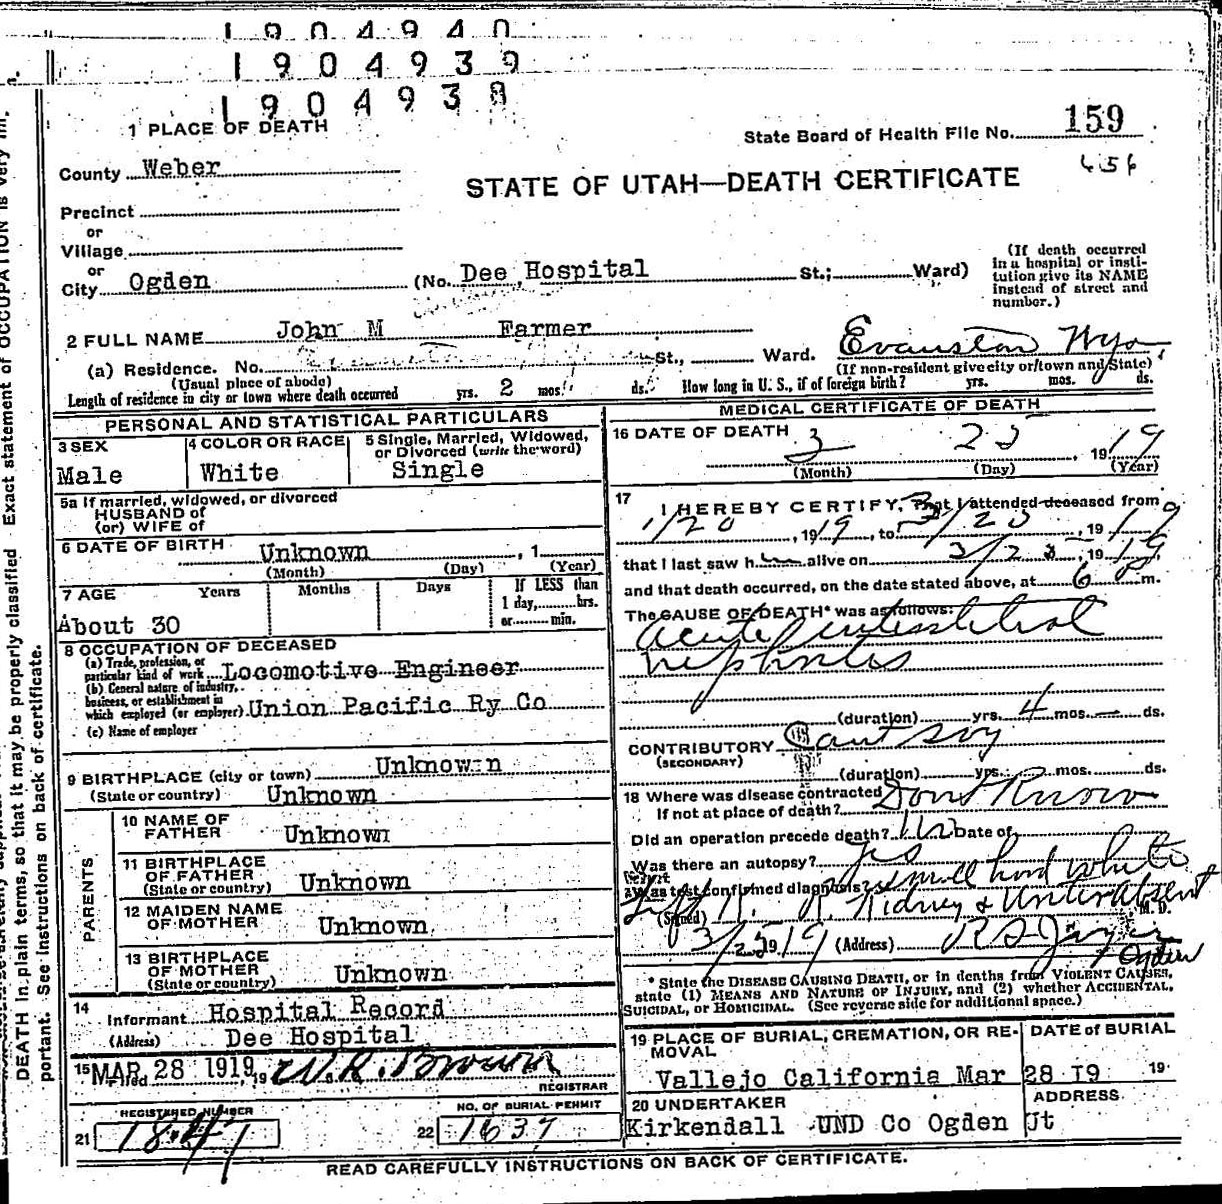 1904940
1904939
1904938
1 PLACE OF DEATH
State Board of Health File No. 159
456
County Weber
STATE OF UTAH—DEATH CERTIFICATE
Precinct
or
Village
or
City Ogden (No. Dee Hospital St.; Ward)
(If death occurred
in a hospital or insti-
tution give its NAME
instead of street and
number.)
2 FULL NAME John M Farmer
(a) Residence. No. St., Ward. Evanston Wyo,
(Usual place of abode) (If non-resident give city or town and State)
Length of residence in city or town where death occurred yrs. 2 mos. ds. How long in U. S., if of foreign birth? yrs. mos. ds.
PERSONAL AND STATISTICAL PARTICULARS
3 SEX
Male
4 COLOR OR RACE
White
5 Single, Married, Widowed,
or Divorced (write the word)
Single
5a If married, widowed, or divorced
HUSBAND of
(or) WIFE of
6 DATE OF BIRTH Unknown , 1
(Month) (Day) (Year)
7 AGE Years Months Days If LESS than
1 day, hrs.
or min.
About 30
8 OCCUPATION OF DECEASED
(a) Trade, profession, or
particular kind of work Locomotive Engineer
(b) General nature of industry,
business, or establishment in
which employed (or employer) Union Pacific Ry Co
(c) Name of employer
9 BIRTHPLACE (city or town) Unknow-n
(State or country) Unknown
PARENTS
10 NAME OF
FATHER Unknown
11 BIRTHPLACE
OF FATHER
(State or country) Unknown
12 MAIDEN NAME
OF MOTHER Unknown
13 BIRTHPLACE
OF MOTHER
(State or country) Unknown
14 Informant Hospital Record
(Address) Dee Hospital
15 Filed MAR 28 1919, 19 W. R. Brown
REGISTRAR
REGISTERED NUMBER
21
NO. OF BURIAL PERMIT
22 1637
MEDICAL CERTIFICATE OF DEATH
16 DATE OF DEATH 3 25, 1919
(Month) (Day) (Year)
17 I HEREBY CERTIFY, That I attended deceased from
1/20, 1919, to 3/25, 1919
that I last saw him alive on 3/25, 1919
and that death occurred, on the date stated above, at 6 P m.
The CAUSE OF DEATH* was as follows:
Acute interstitial
nephritis
(duration) yrs. 4 mos. — ds.
CONTRIBUTORY Cant say
(SECONDARY)
(duration) yrs. mos. ds.
18 Where was disease contracted
If not at place of death? Dont Know
Did an operation precede death? no Date of
Was there an autopsy? yes
What test confirmed diagnosis? small hard white
Left K. R. Kidney & Ureter absent
(Signed) M. D.
3/25 1919 (Address) Ogden
* State the DISEASE CAUSING DEATH, or in deaths from VIOLENT CAUSES,
state (1) MEANS AND NATURE OF INJURY, and (2) whether ACCIDENTAL,
SUICIDAL, or HOMICIDAL. (See reverse side for additional space.)
19 PLACE OF BURIAL, CREMATION, OR RE-
MOVAL
Vallejo California Mar
DATE of BURIAL
28 I9 19
20 UNDERTAKER
Kirkendall UND Co Ogden
ADDRESS
Jt
READ CAREFULLY INSTRUCTIONS ON BACK OF CERTIFICATE.
DEATH in plain terms, so that it may be properly classified Exact statement of OCCUPATION is very im-
portant. See instructions on back of certificate.